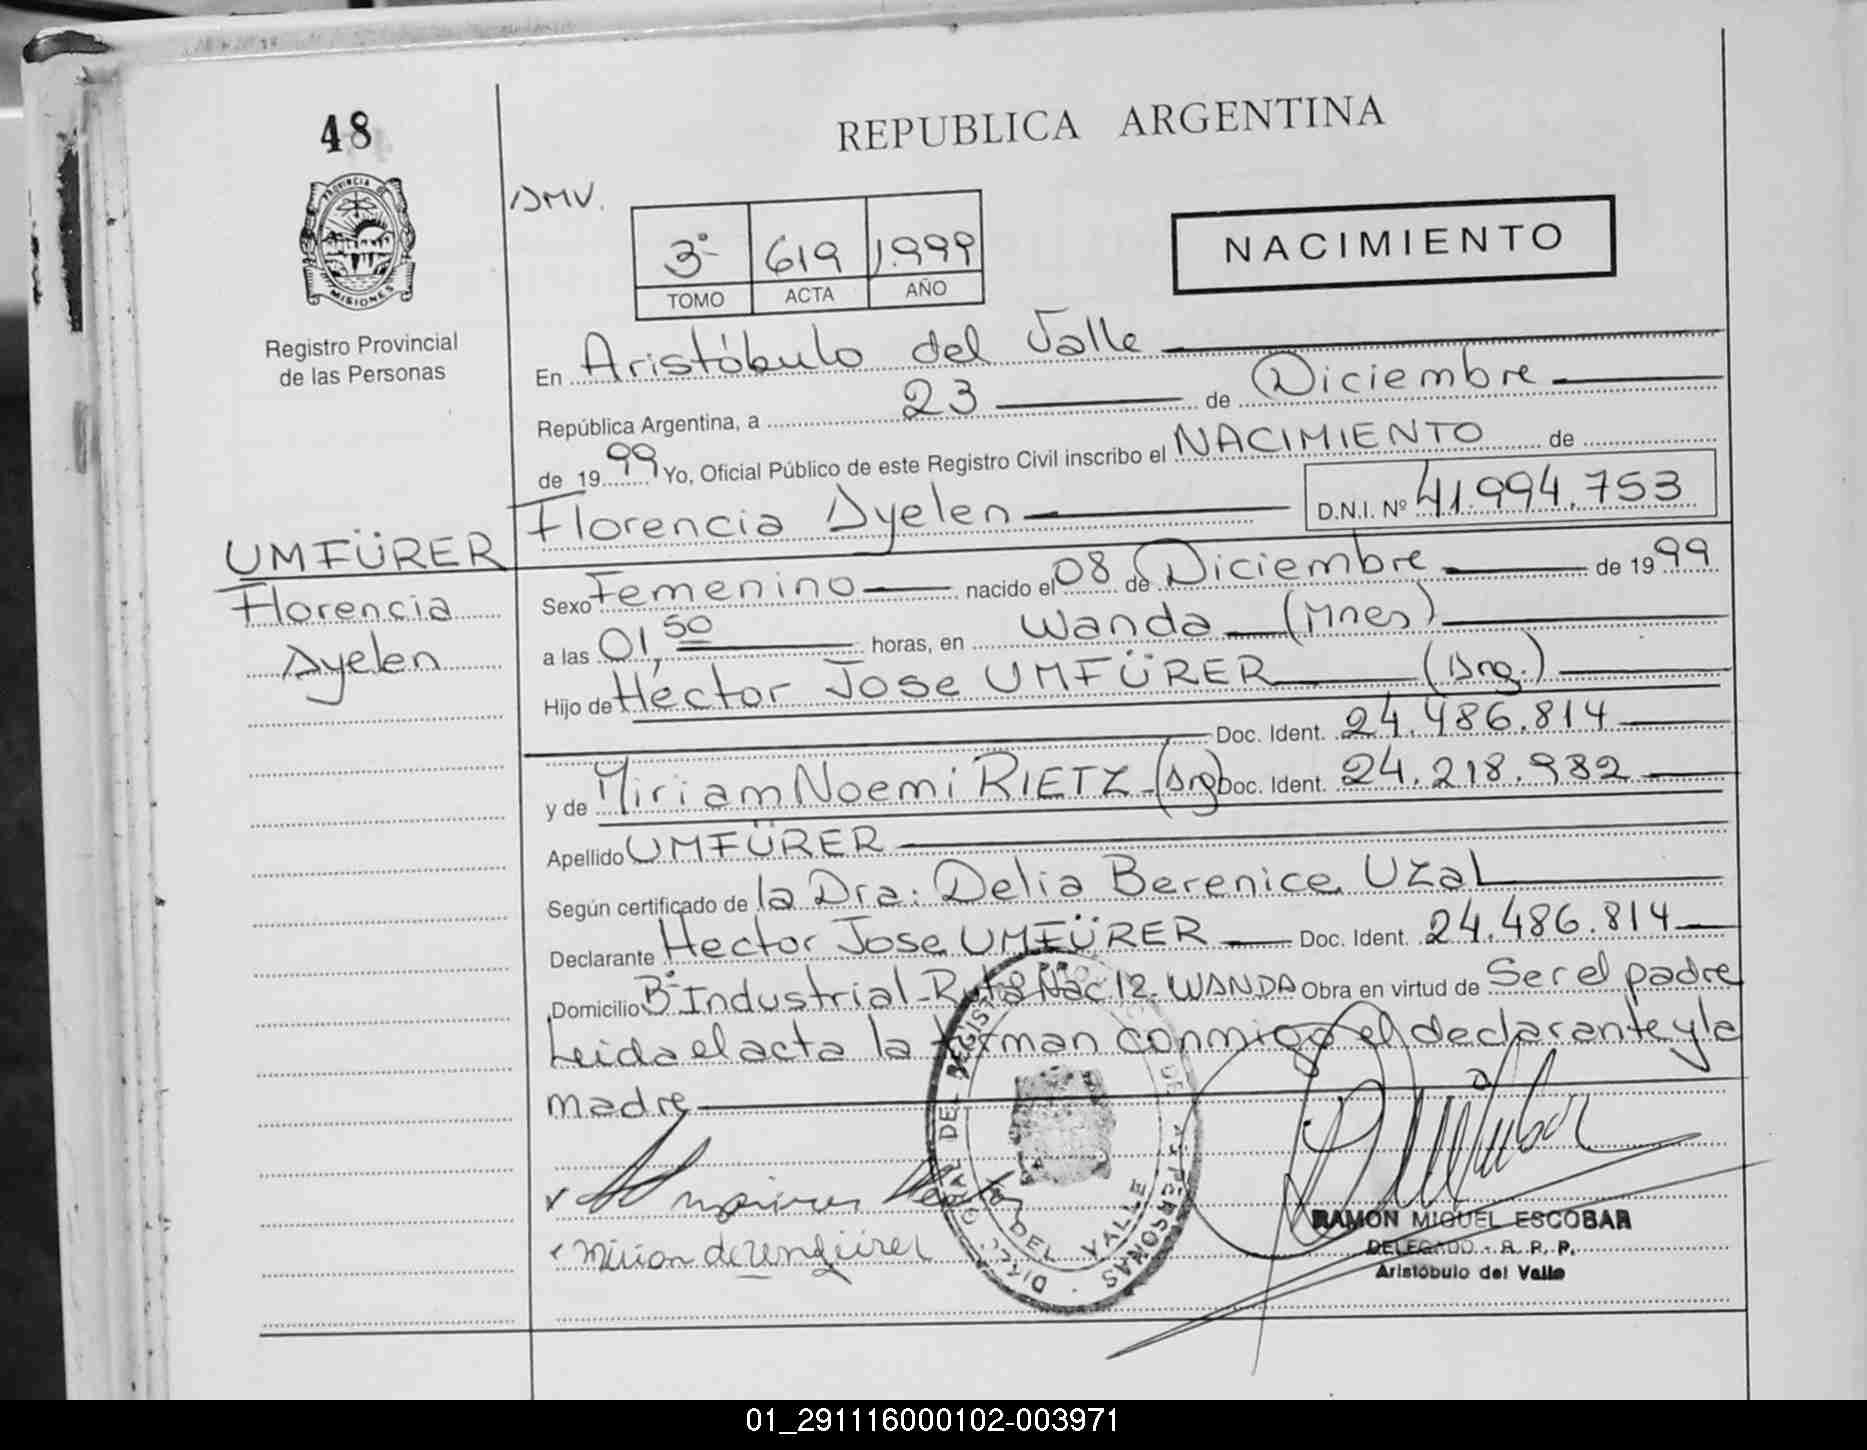 48
REPUBLICA ARGENTINA
PROVINCIA DE
MISIONES
Registro Provincial
de las Personas
AMV.
3º 619 1.999
TOMO ACTA AÑO
NACIMIENTO
En Aristóbulo del Valle
República Argentina, a 23 de Diciembre
de 1999 Yo, Oficial Público de este Registro Civil inscribo el NACIMIENTO de
Florencia Ayelen D.N.I. Nº 41.994.753
UMFÜRER
Florencia
Ayelen
Sexo Femenino nacido el 08 de Diciembre de 1999
a las 01,50 horas, en Wanda (Mnes)
Hijo de Héctor Jose UMFÜRER (Arg.)
Doc. Ident. 24.486.814
y de Miriam Noemi RIETZ (Arg) Doc. Ident. 24.218.982
Apellido UMFÜRER
Según certificado de la Dra. Delia Berenice Uzal
Declarante Hector Jose UMFÜRER Doc. Ident. 24.486.814
Domicilio Bº Industrial - Ruta Nac. 12 - WANDA Obra en virtud de Ser el padre
Leida el acta la firman conmigo el declarante y la
madre
DEL VALLE
PERSONAS
RAMON MIGUEL ESCOBAR
DELEGADO - R. P. P.
Aristóbulo del Valle
01_291116000102-003971